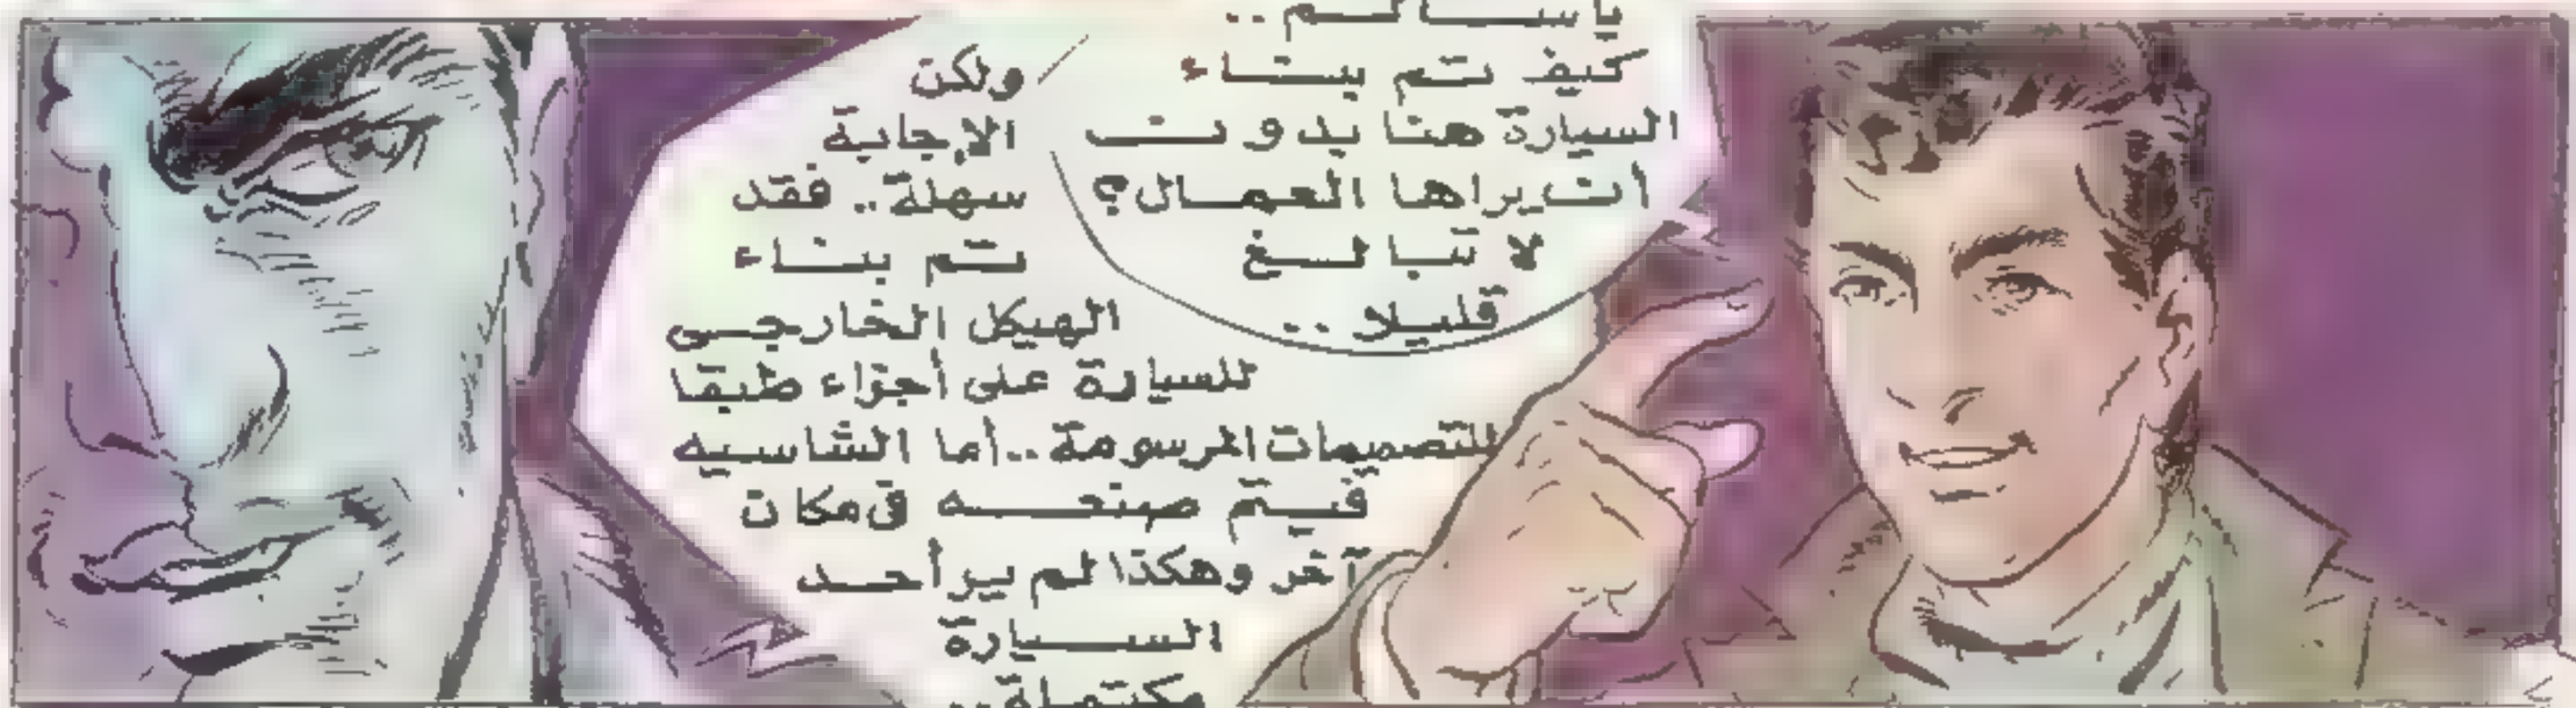 ياسالم ..
كيف تم بناء
السيارة هنا بدون
أن يراها العمال؟
لا تبالغ
قليلا ..
ولكن
الإجابة
سهلة .. فقد
تم بناء
الهيكل الخارجى
للسيارة على أجزاء طبقا
للتصميمات المرسومة .. أما الشاسيه
فيتم صنعه فى مكان
آخر وهكذا لم ير أحد
السيارة
مكتملة ..